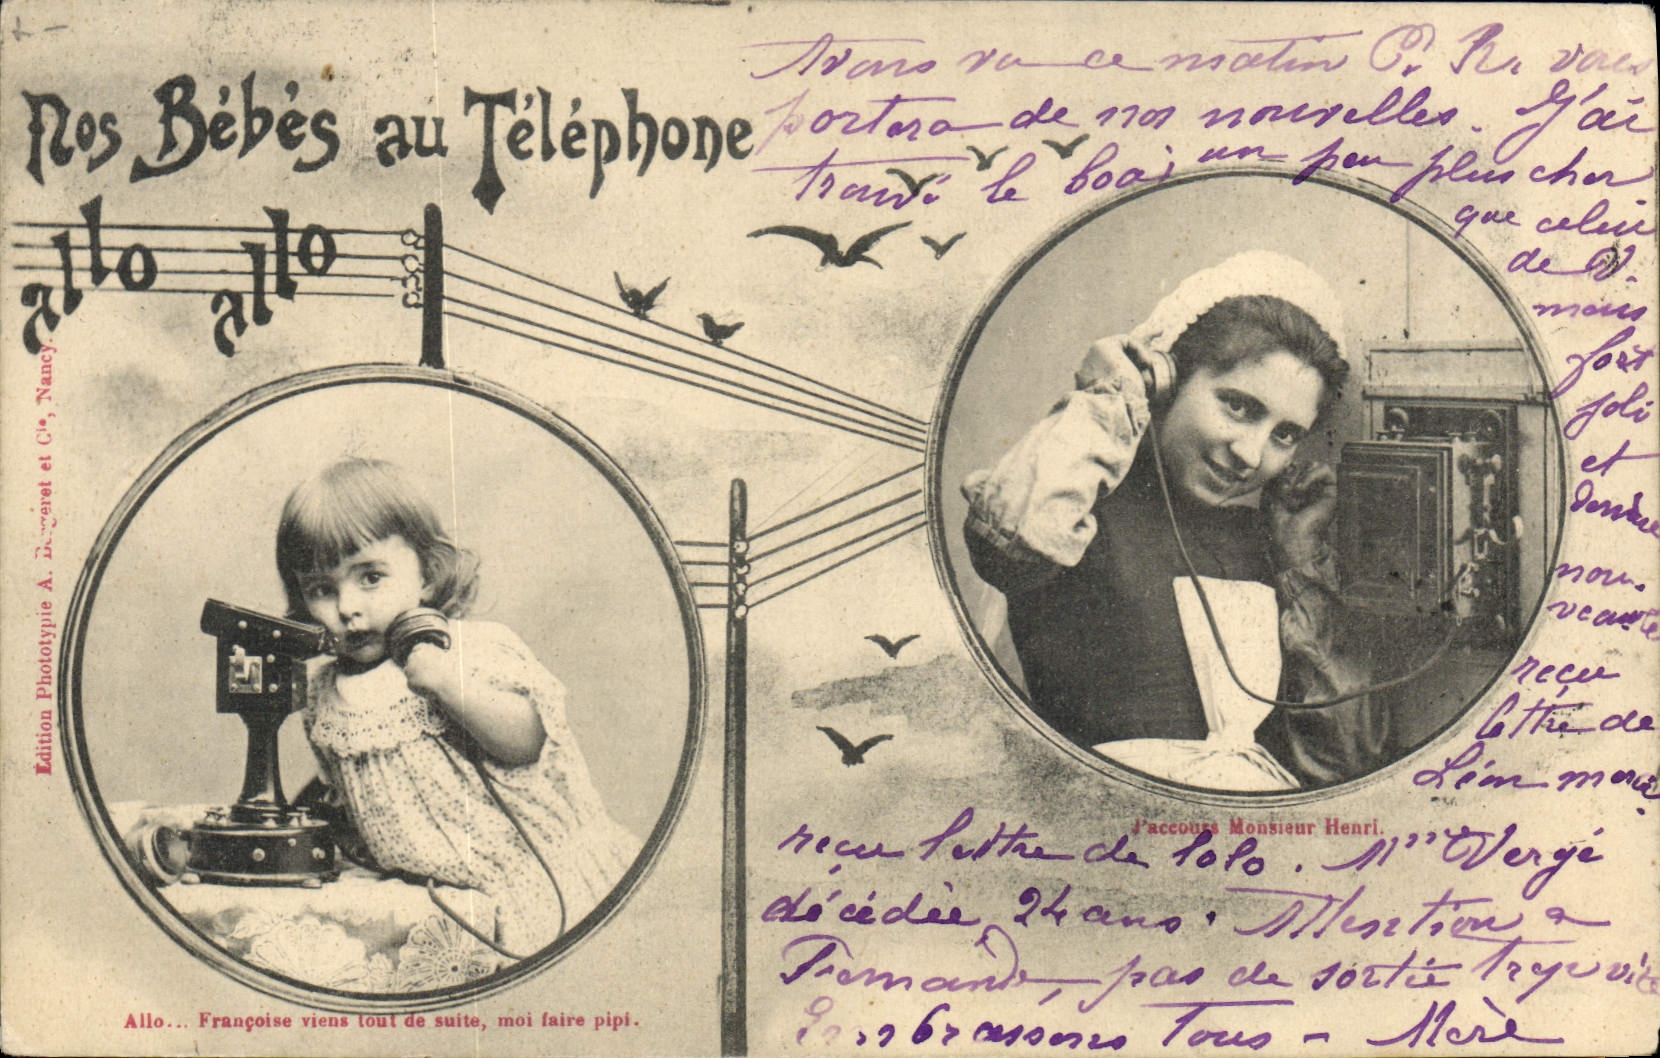 Nos Bébés au Téléphone
allo allo
Edition Phototypie A. Bergeret et Cie, Nancy.
Avons vu ce matin P. R. vous
portera de nos nouvelles. J'ai
trouvé le boa un peu plus cher
que celui
de V.
mais
fort
joli
et
dernière
nou-
veauté
reçu
lettre de
Léon merci.
J'accours Monsieur Henri.
reçu lettre de Lolo. Mme Vergé
décédée 24 ans. Attention a
Fernande, pas de sortie trop vite
Embrassons Tous - Mère
Allo... Françoise viens tout de suite, moi faire pipi.